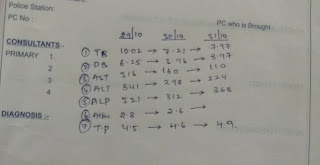 Police Station:
PC No :
PC who is Brought :
29/10 30/10 31/10
CONSULTANTS:-
PRIMARY 1.
2
3
4
① TB 10.02 → 7.21 → 7.97
② DB 6.25 → 3.96 → 3.97
③ AST 316 → 160 → 110
④ ALT 341 → 298 → 224
⑤ ALP 321 → 312 → 368
⑥ 2.8 → 2.6 →
⑦ T.P 4.5 → 4.6 → 4.9.
DIAGNOSIS :-